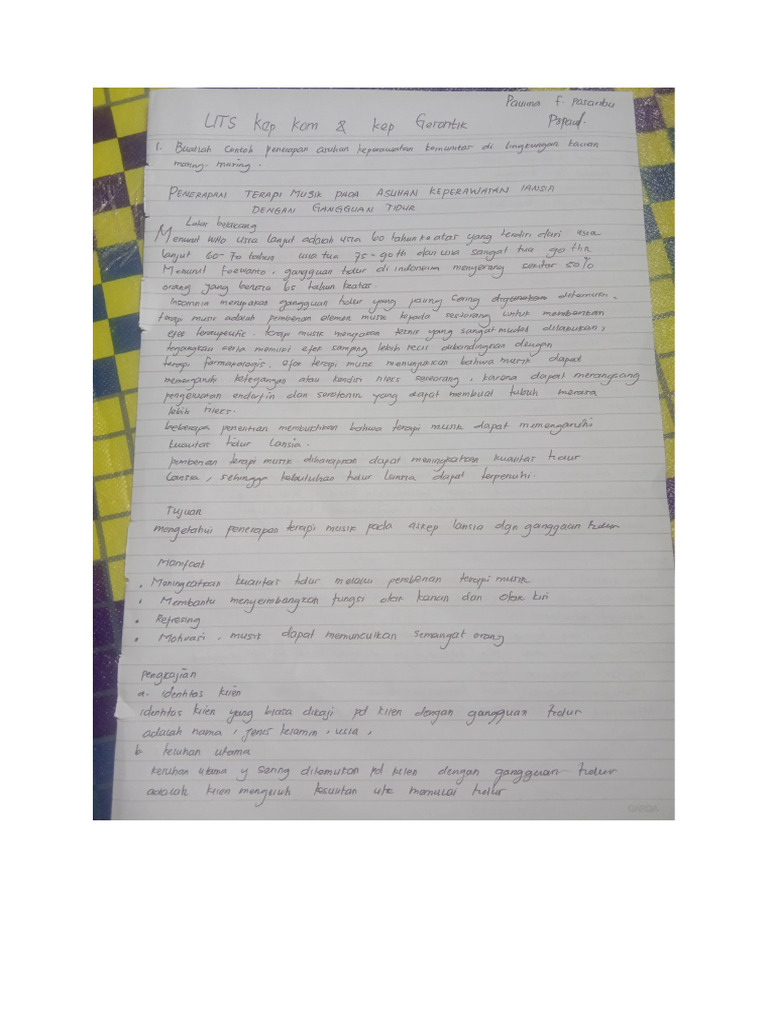 Paulina F. Pasaribu
UTS Kep Kom & Kep Gerontik
1. Buatlah contoh penerapan asuhan keperawatan komunitas di lingkungan kalian
masing-masing.
PENERAPAN TERAPI MUSIK PADA ASUHAN KEPERAWATAN LANSIA
DENGAN GANGGUAN TIDUR
Latar belakang
Menurut WHO usia lanjut adalah usia 60 tahun keatas yang terdiri dari usia
lanjut 60-70 tahun usia tua 75-90 th dan usia sangat tua 90 thn
Menurut, gangguan tidur di indonesia menyerang sekitar 50%
orang yang berusia 65 tahun keatas.
Insomnia merupakan gangguan tidur yang paling sering ditemukan.
terapi musik adalah pemberian elemen musik kepada seseorang untuk memberikan
efek terapeutik. terapi musik merupakan teknik yang sangat mudah dilakukan,
terjangkau serta memiliki efek samping lebih kecil dibandingkan dengan
terapi farmakologis, efek terapi musik menunjukkan bahwa musik dapat
memengaruhi ketegangan atau kondisi rileks seseorang, karena dapat merangsang
pengeluaran endorfin dan serotonin yang dapat membuat tubuh merasa
lebih rileks.
beberapa penelitian membuktikan bahwa terapi musik dapat memengaruhi
kualitas tidur lansia.
pemberian terapi musik diharapkan dapat meningkatkan kualitas tidur
lansia, sehingga kebutuhan tidur lansia dapat terpenuhi.
Tujuan
mengetahui penerapan terapi musik pada askep lansia dgn gangguan tidur
Manfaat
• Meningkatkan kualitas tidur melalui pemberian terapi musik
• Membantu menyeimbangkan fungsi otak kanan dan otak kiri
• Refresing
• Motivasi, musik dapat memunculkan semangat orang
pengkajian
a. identitas klien
identitas klien yang biasa dikaji pd klien dengan gangguan tidur
adalah nama, jenis kelamin, usia,
b. keluhan utama
keluhan utama y sering ditemukan pd klien dengan gangguan tidur
adalah klien mengeluh kesulitan utk memulai tidur